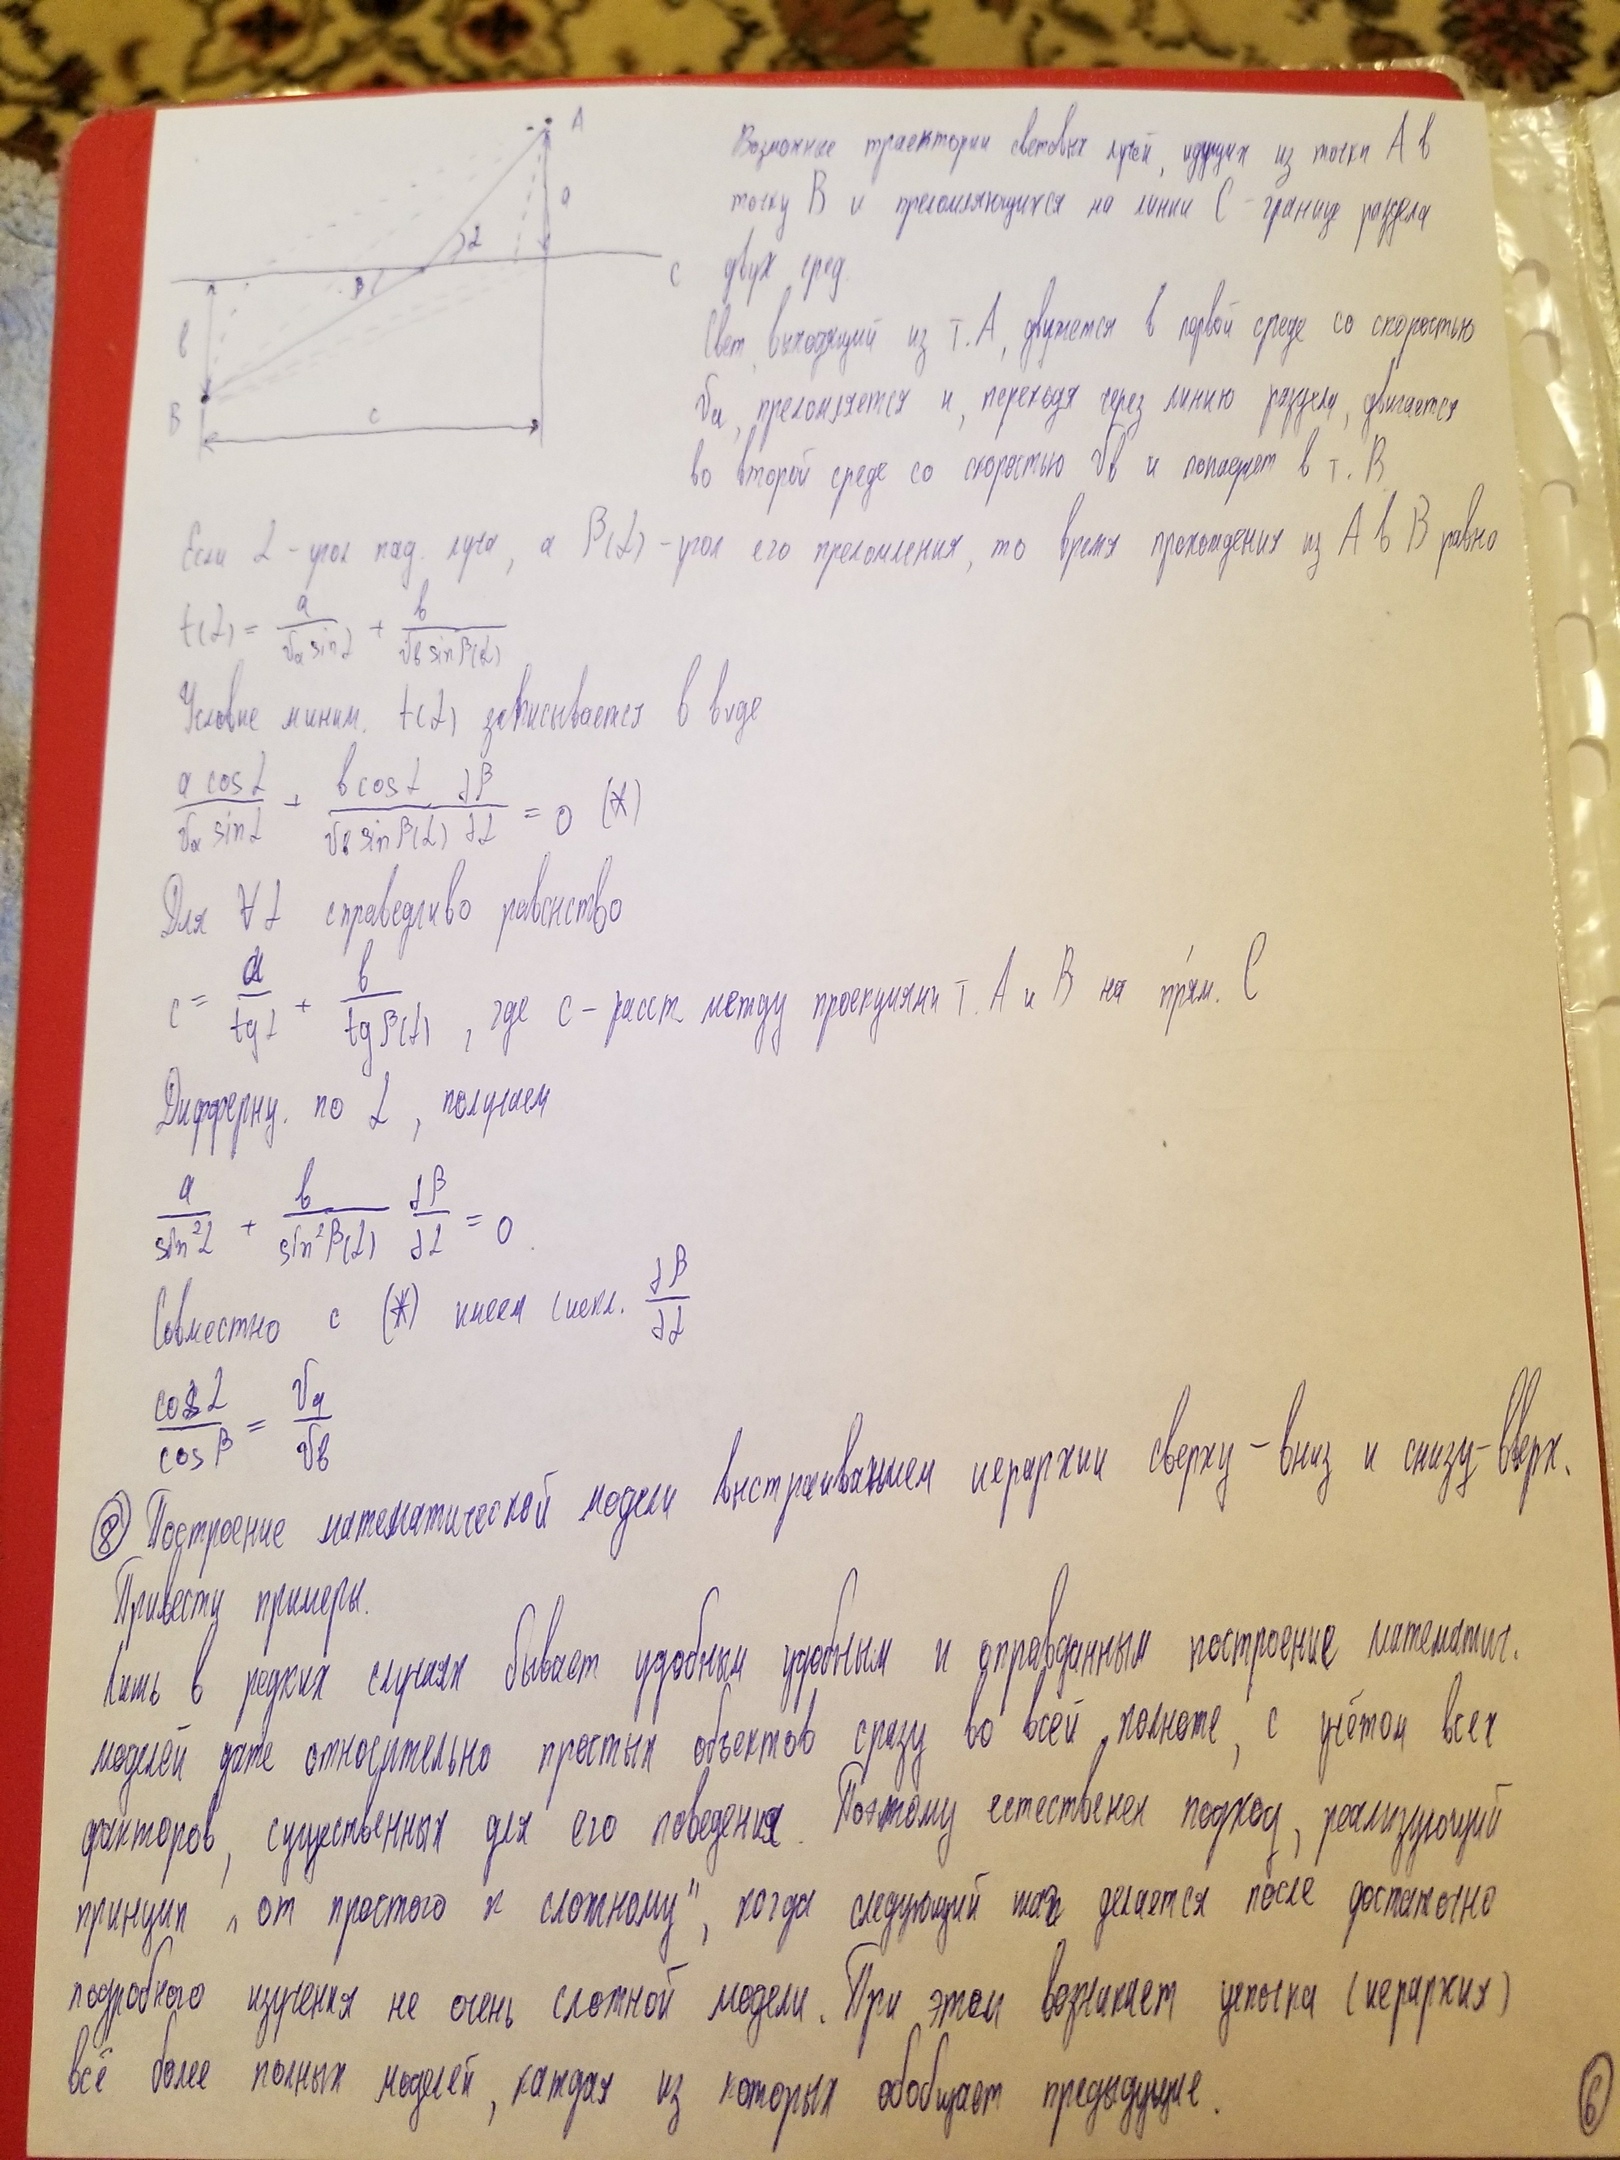 A
a
α
β
C
в
B
c
Возможные траектории световых лучей, идущих из точки A в
точку B и преломляющихся на линии C - границе раздела
двух сред.
Свет, выходящий из т. A, движется в первой среде со скоростью
Va, преломляется и, переходя через линию раздела, двигается
во второй среде со скоростью Vв и попадает в т. B
Если α - угол пад. луча, а β(α) - угол его преломления, то время прохождения из A в B равно
t(α) = a / (Va sin α) + в / (Vв sin β(α))
Условие миним. t(α) записывается в виде
a cos α / (Va sin α) + в cos α dβ / (Vв sin β(α) dα) = 0 (*)
Для ∀α справедливо равенство
c = a / tg α + в / tg β(α), где c - расст. между проекциями т. A и B на прям. C
Дифферну. по α, получаем
a / sin²α + в / sin²β(α) dβ/dα = 0.
Совместно с (*) имеем (искл. dβ/dα
cos α / cos β = Va / Vв
⑧ Построение математической модели выстраиванием иерархии сверху-вниз и снизу-вверх.
Привести примеры.
Лишь в редких случаях бывает удобным удобным и оправданным построение математич.
моделей даже относительно простых объектов сразу во всей полноте, с учётом всех
факторов, существенных для его поведения. Поэтому естественен подход, реализующий
принцип „от простого к сложному", когда следующий шаг делается после достаточно
подробного изучения не очень сложной модели. При этом возникает цепочка (иерархия)
всё более полных моделей, каждая из которых обобщает предыдущие.
6